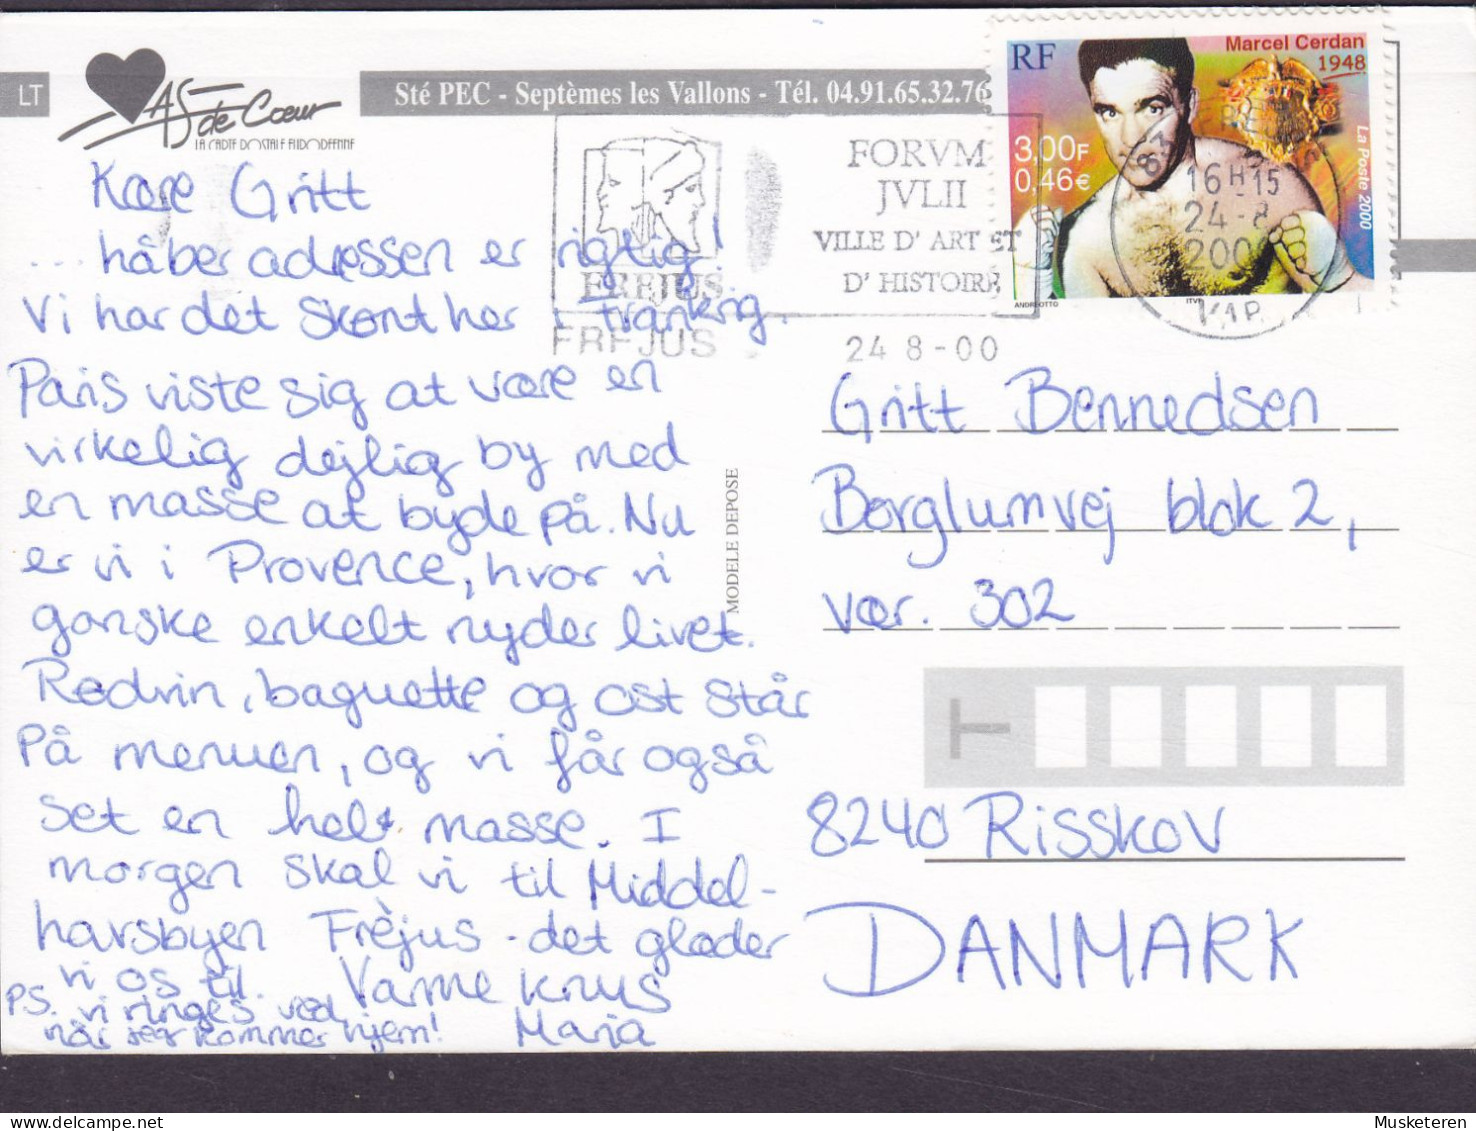 LT
As de Cœur
LA CARTE POSTALE EUROPEENNE
Sté PEC - Septèmes les Vallons - Tél. 04.91.65.32.76
RF
Marcel Cerdan
1948
3,00F
0,46€
La Poste 2000
ITVF
FORVM
JVLII
VILLE D' ART ET
D' HISTOIRE
FREJUS
FREJUS
24 8-00
16H15
24-8
200
VAR
Kære Gritt
... håber adressen er rigtig!
Vi har det skønt her i Frankrig.
Paris viste sig at være en
virkelig dejlig by med
en masse at byde på. Nu
er vi i Provence, hvor vi
ganske enkelt nyder livet.
Rødvin, baguette og ost står
på menuen, og vi får også
set en hel masse. I
morgen skal vi til Middel-
havsbyen Frèjus - det glæder
vi os til. Varme knus
Maria
PS. vi ringes ved
når jeg kommer hjem!
MODELE DEPOSE
Gritt Bennedsen
Børglumvej blok 2,
vær. 302
T
8240 Risskov
DANMARK
Musketeren